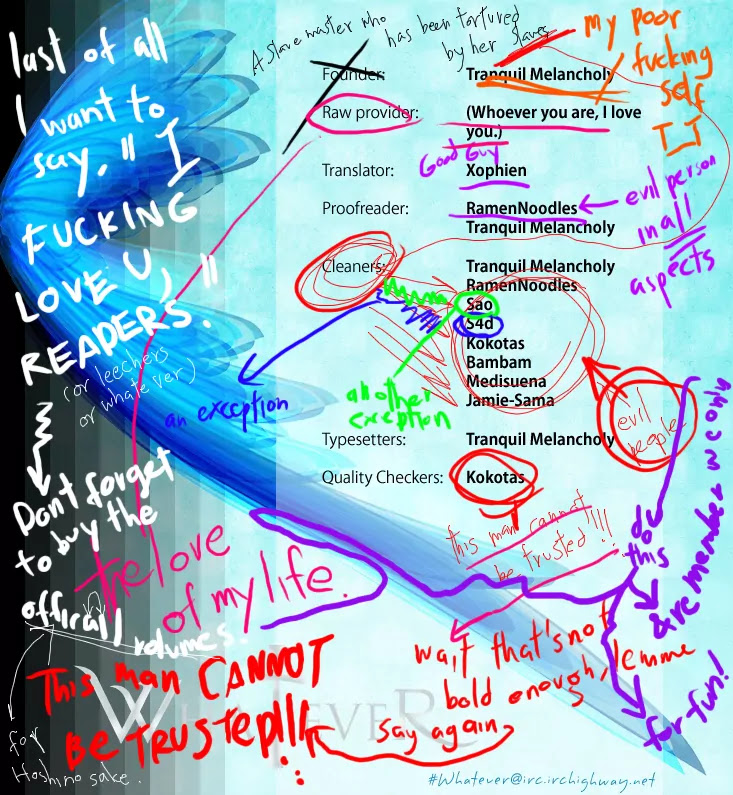 A slave master who has been tortured
by her slaves
Founder: Tranquil Melancholy
my poor
fucking
self
T_T
Raw provider: (Whoever you are, I love
you.)
Good Guy
Translator: Xophien
Proofreader: RamenNoodles
Tranquil Melancholy
evil person
in all
aspects
Cleaners: Tranquil Melancholy
RamenNoodles
Sao
S4d
Kokotas
Bambam
Medisuena
Jamie-Sama
an exception
another
exception
evil
people
Typesetters: Tranquil Melancholy
Quality Checkers: Kokotas
this man cannot
be trusted!!!!
wait that's not
bold enough, lemme
say again
This man CANNOT
BE TRUSTED!!!
the love
of my life.
last of all
I want to
say, "I
FUCKING
LOVE U,
READERS."
(or leechers
or whatever)
Dont forget
to buy the
offirall
volumes.
for
Hoshino sake.
& remember we only
do
this
for fun!
WHATEVER
#Whatever@irc.irchighway.net